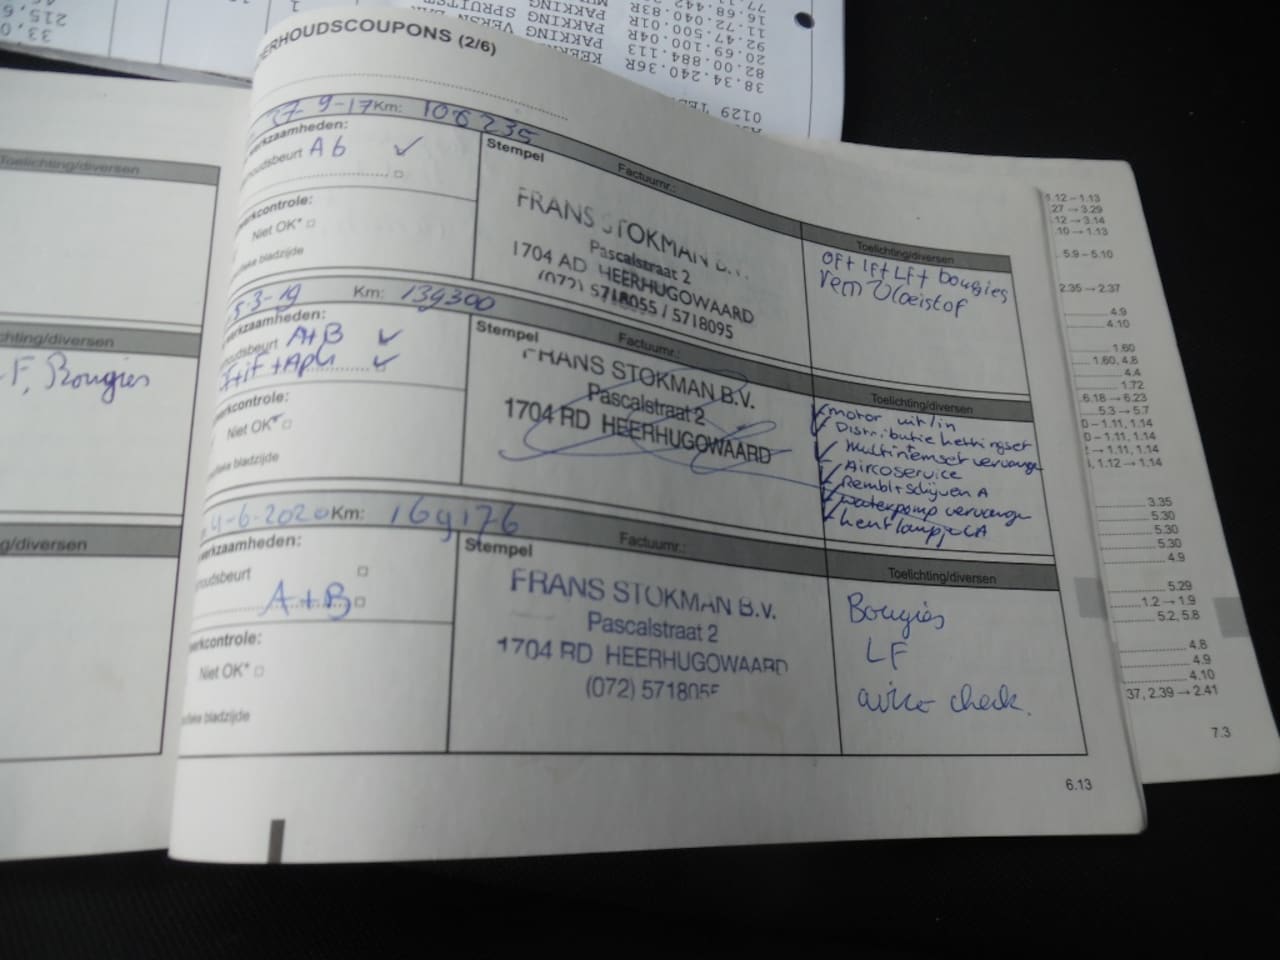 ERHOUDSCOUPONS (2/6)
7-9-17 Km: 106235
werkzaamheden:
houdsbeurt A b ✓
Stempel
Factuurnr.:
FRANS STOKMAN B.V.
Pascalstraat 2
1704 AD HEERHUGOWAARD
(072) 5718055 / 5718095
Toelichting/diversen
oft Ift Lft bougies
rem vloeistof
werkcontrole:
Niet OK* □
bladzijde
5-3-19 Km: 139300
werkzaamheden:
houdsbeurt A+B ✓
Stempel
Factuurnr.:
FRANS STOKMAN B.V.
Pascalstraat 2
1704 RD HEERHUGOWAARD
Toelichting/diversen
motor uit/in
Distributie kettingset
Multiriemset vervangen
Aircoservice
Rembl+schijven A
waterpomp vervangen
werkcontrole:
Niet OK* □
bladzijde
4-6-2020 Km: 169176
werkzaamheden:
houdsbeurt □
A+B □
Stempel
Factuurnr.:
FRANS STOKMAN B.V.
Pascalstraat 2
1704 RD HEERHUGOWAARD
(072) 5718055
Toelichting/diversen
Bougies
LF
airco check.
werkcontrole:
Niet OK* □
bladzijde
6.13
Toelichting/diversen
chting/diversen
F, Bougies
g/diversen
1.12 – 1.13
27 → 3.29
12 → 3.14
10 → 1.13
5.9 – 5.10
2.35 → 2.37
4.9
4.10
1.60
1.60, 4.8
4.4
1.72
6.18 → 6.23
5.3 → 5.7
0 – 1.11, 1.14
0 – 1.11, 1.14
→ 1.11, 1.14
1.12 → 1.14
3.35
5.30
5.30
5.30
4.9
5.29
1.2 → 1.9
5.2, 5.8
4.8
4.9
4.10
37, 2.39 → 2.41
7.3
0129
38.34.240.36R
82.00.884.113
20.69.100.04R
92.47.500.01R
PAKKING
PAKKING SPRUITST
PAKKING
215
33,0